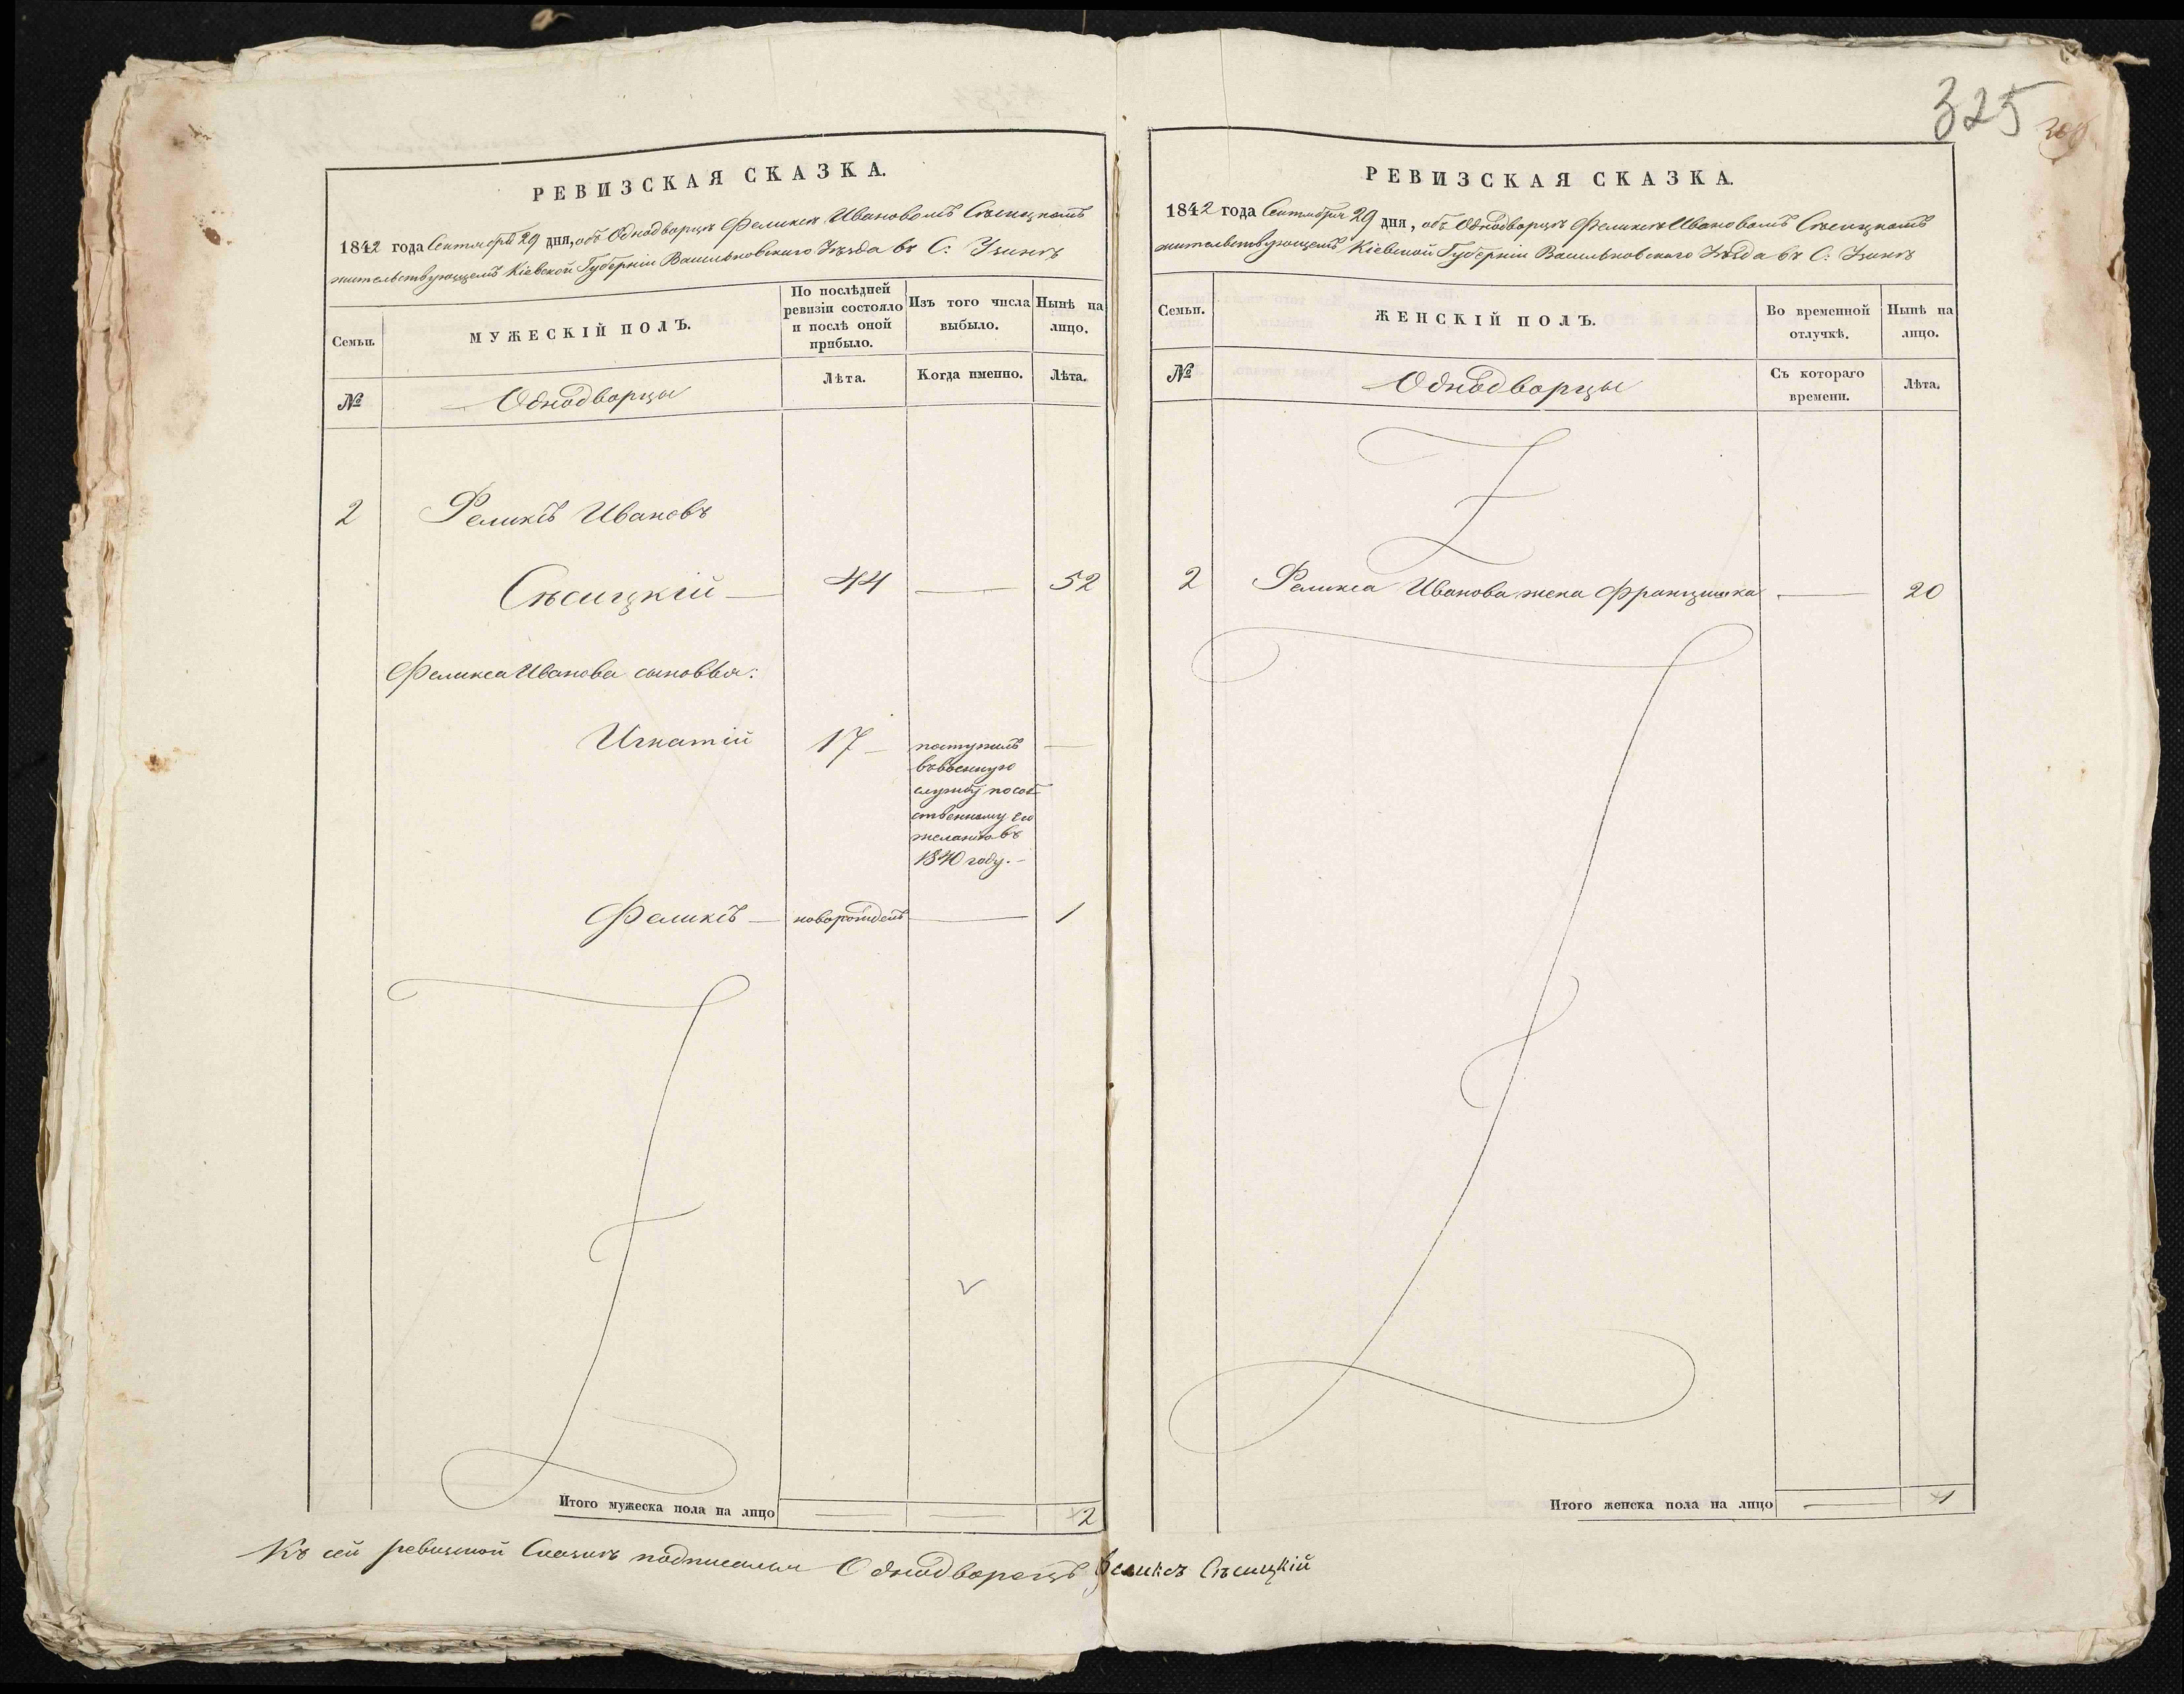 325
РЕВИЗСКАЯ СКАЗКА.
1842 года Сентября 29 дня, объ Однодворцѣ Феликсѣ Ивановомъ Сѣсицкомъ
жительствующемъ Кіевской Губерніи Васильковскаго Уѣзда въ С: Узинѣ
Семьи.
МУЖЕСКІЙ ПОЛЪ.
По послѣдней
ревизіи состояло
и послѣ оной
прибыло.
Изъ того числа
выбыло.
Нынѣ на
лицо.
№
Однодворцы
Лѣта.
Когда именно.
Лѣта.
2 Феликсъ Ивановъ
Сѣсицкій — 44 — 52
Феликса Иванова сыновья:
Игнатій 17 — поступилъ —
въ военную
службу по соб
ственному его
желанію въ
1840 году. –
Феликсъ — новорожденъ — 1
Итого мужеска пола на лицо — — 2
РЕВИЗСКАЯ СКАЗКА.
1842 года Сентября 29 дня, объ Однодворцѣ Феликсѣ Ивановомъ Сѣсицкомъ
жительствующемъ Кіевской Губерніи Васильковскаго Уѣзда въ С: Узинѣ
Семьи.
ЖЕНСКІЙ ПОЛЪ.
Во временной
отлучкѣ.
Нынѣ на
лицо.
№
Однодворцы
Съ котораго
времени.
Лѣта.
2 Феликса Иванова жена Францишка — 20
Итого женска пола на лицо — 1
Къ сей ревизской Сказкѣ подписался Однодворецъ Феликсъ Сѣсицкій